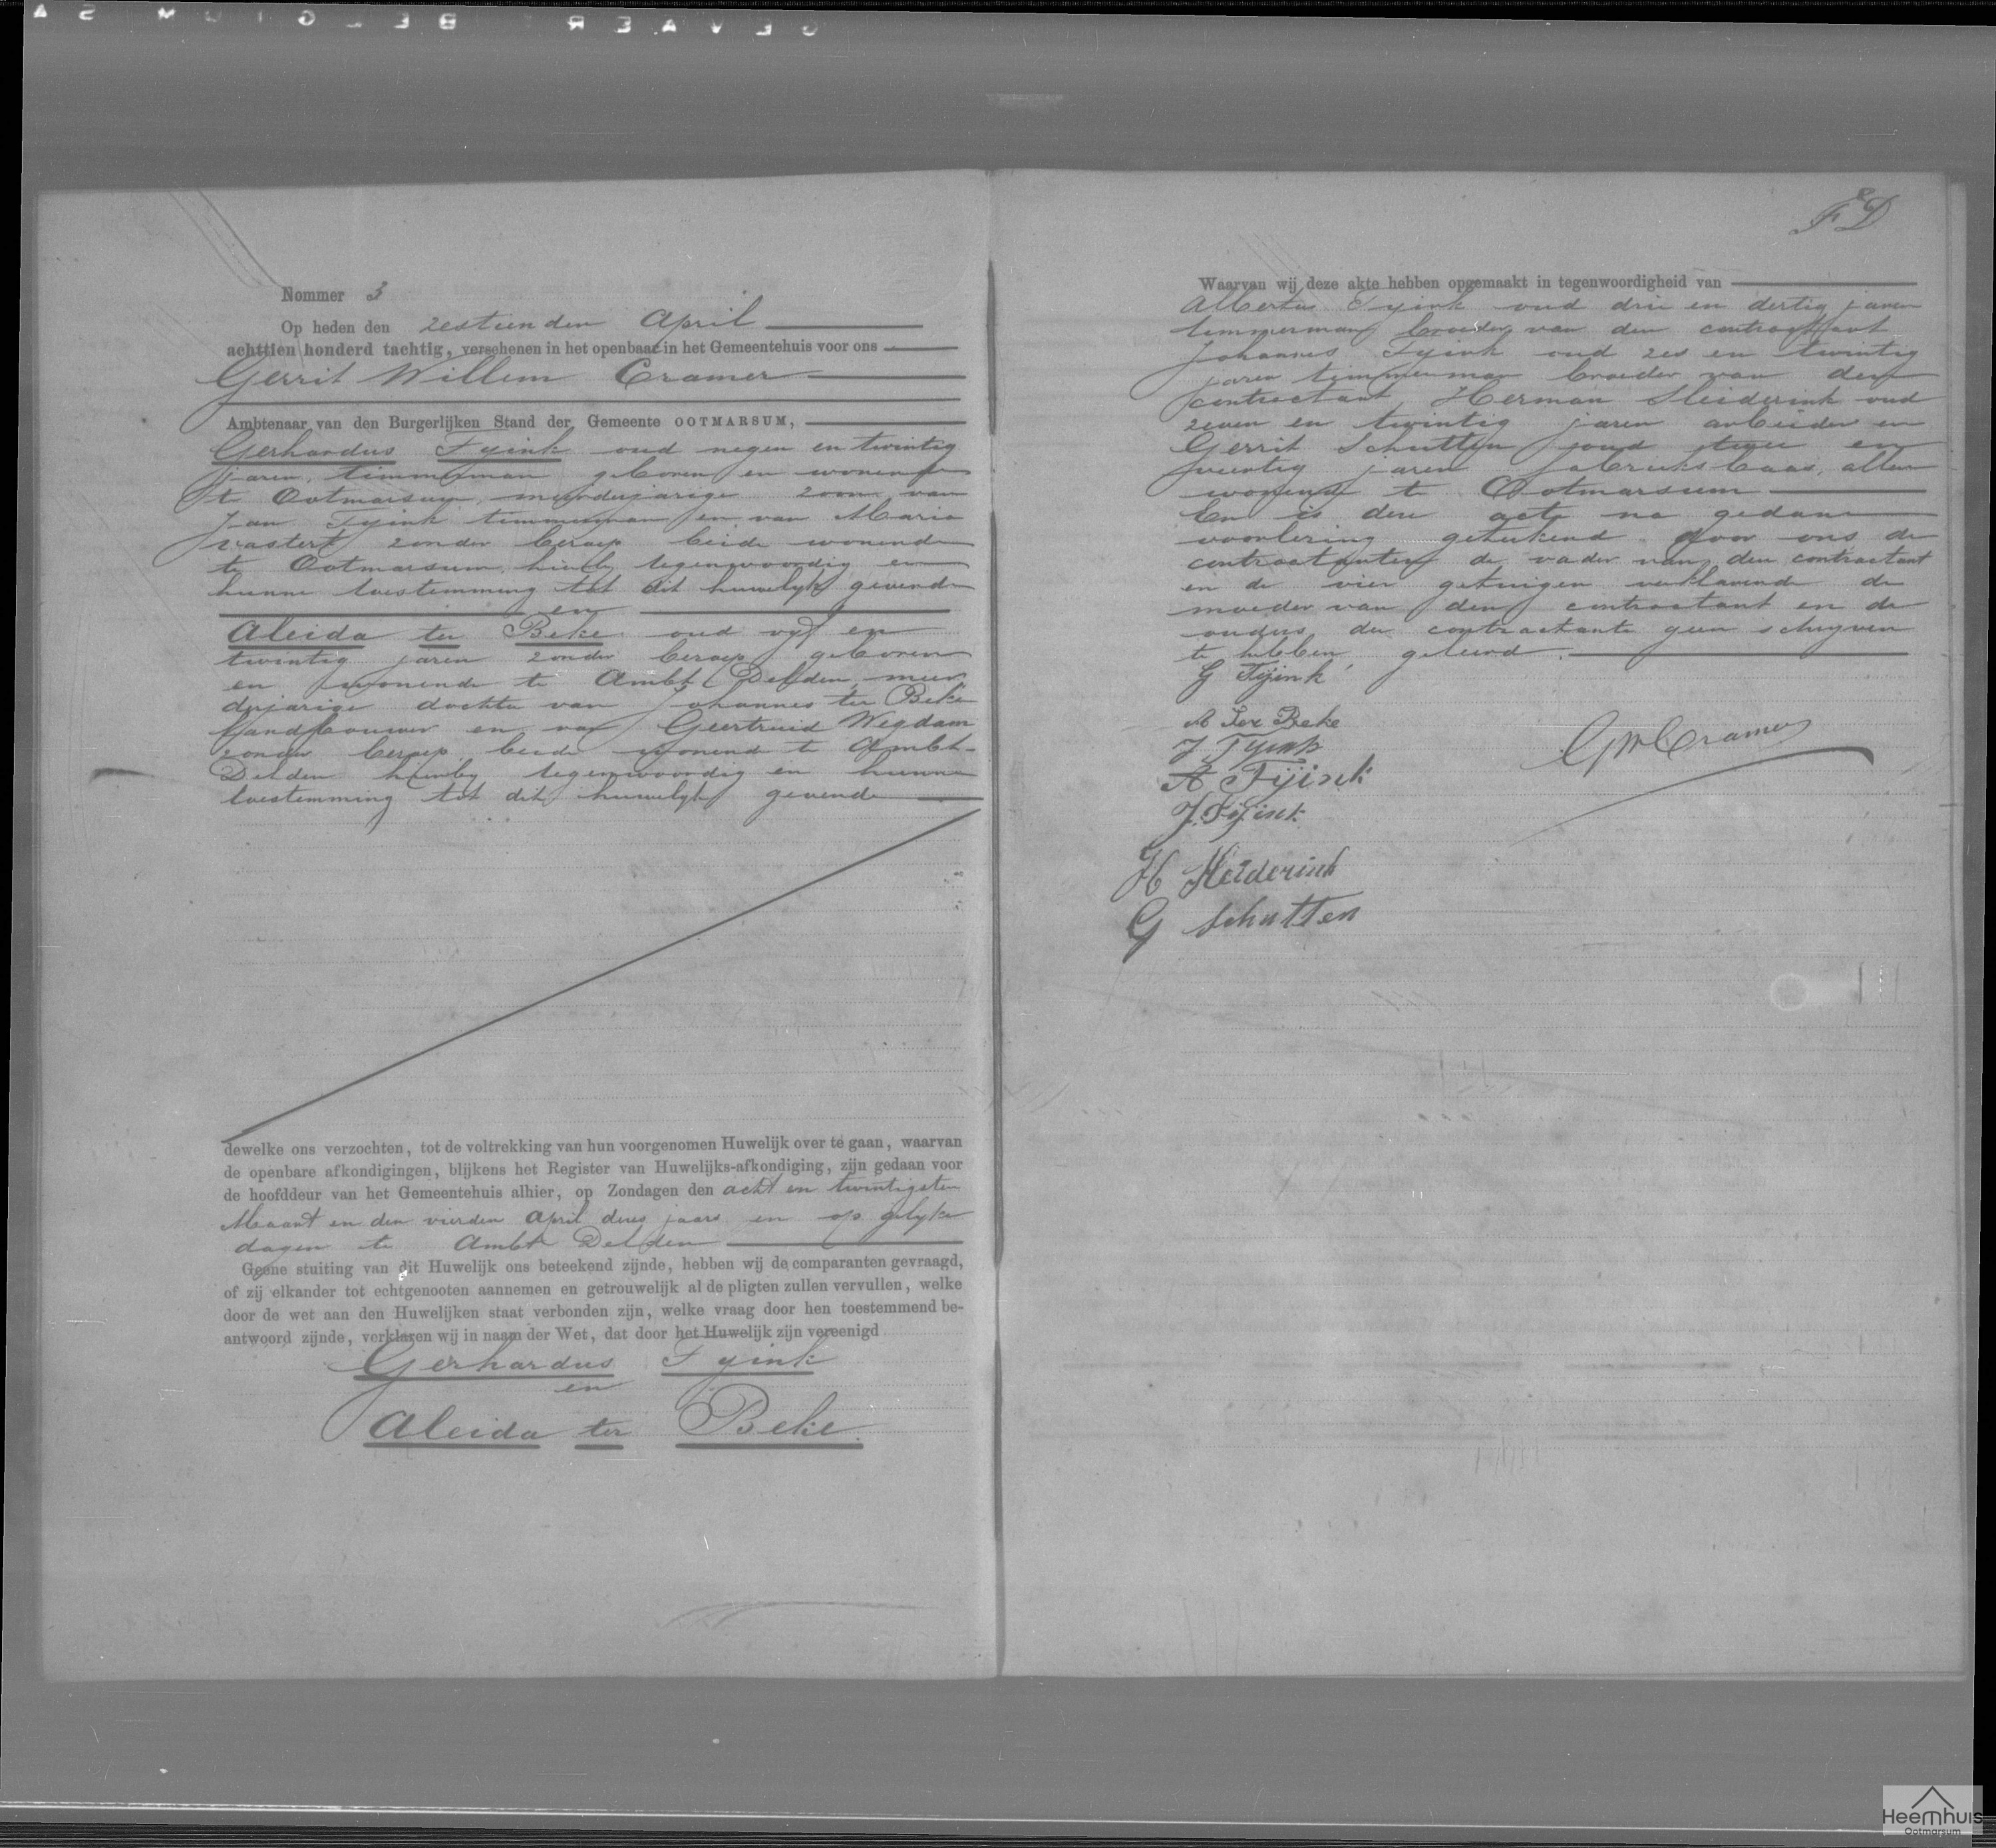 GEVAERT BELGIUM SA
Nommer 3
Op heden den zestienden April
achttien honderd tachtig, verschenen in het openbaar in het Gemeentehuis voor ons
Gerrit Willem Cramer
Ambtenaar van den Burgerlijken Stand der Gemeente OOTMARSUM,
Gerhardus Tyink oud negen en twintig
jaren, timmerman geboren en wonende
te Ootmarsum, meerderjarige zoon van
Jan Tyink timmerman en van Maria
zonder beroep beide wonende
te Ootmarsum hierby tegenwoordig en
hunne toestemming tot dit huwelyk gevende
en
Aleida ter Beke oud vyf en
twintig jaren zonder beroep geboren
en wonende te Ambt Delden, meer
derjarige dochter van Johannes ter Beke
landbouwer en van Geertruid Wegdam
zonder beroep beide wonende te Ambt-
Delden hierby tegenwoordig en hunne
toestemming tot dit huwelyk gevende
dewelke ons verzochten, tot de voltrekking van hun voorgenomen Huwelijk over te gaan, waarvan
de openbare afkondigingen, blijkens het Register van Huwelijks-afkondiging, zijn gedaan voor
de hoofddeur van het Gemeentehuis alhier, op Zondagen den acht en twintigsten
Maart en den vierden April dezes jaars en op gelyke
dagen te Ambt Delden
Geene stuiting van dit Huwelijk ons beteekend zijnde, hebben wij de comparanten gevraagd,
of zij elkander tot echtgenooten aannemen en getrouwelijk al de pligten zullen vervullen, welke
door de wet aan den Huwelijken staat verbonden zijn, welke vraag door hen toestemmend be-
antwoord zijnde, verklaren wij in naam der Wet, dat door het Huwelijk zijn vereenigd
Gerhardus Tyink
en
Aleida ter Beke.
Waarvan wij deze akte hebben opgemaakt in tegenwoordigheid van
Albertus Tyink oud drie en dertig jaren
timmerman broeder van den contractant
Johannes Tyink oud zes en twintig
jaren timmerman broeder van den
contractant Herman Meiderink oud
zeven en twintig jaren arbeider en
Gerrit Schutten oud twee en
veertig jaren fabrieksbaas, allen
wonende te Ootmarsum
En is deze acte na gedane
voorlezing geteekend door ons de
contractanten de vader van den contractant
en de vier getuigen verklarende de
moeder van den contractant en de
ouders der contractante geen schryven
te hebben geleerd.
G Tijink
A Ter Beke
J Tyink
GWCramer
A Tijink
J. Tijink
H Meiderink
G Schutten
Heemhuis
Ootmarsum